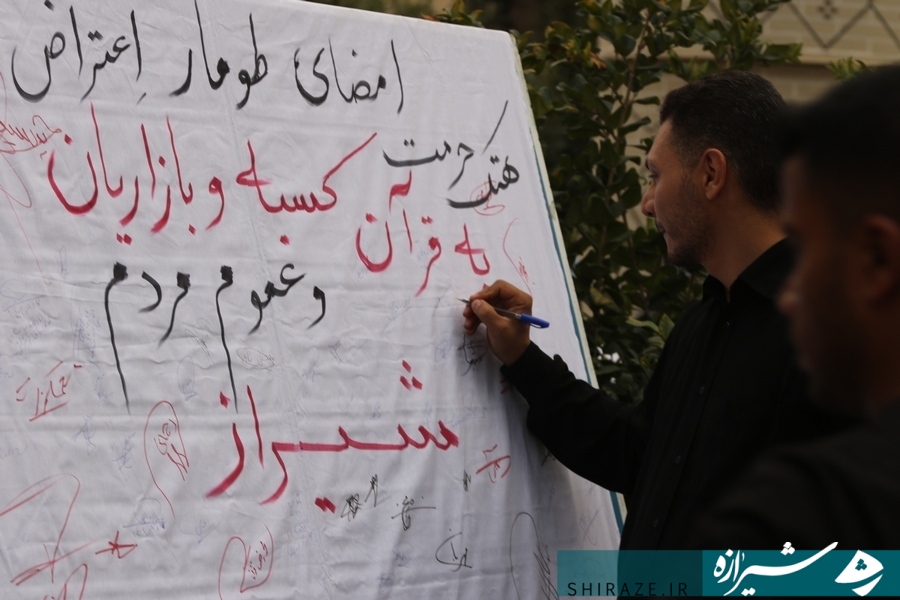 امضای طومار اعتراض
هتک حرمت
به قرآن کسبه و بازاریان
و عموم مردم
شیراز
شیرازه
SHIRAZE.IR